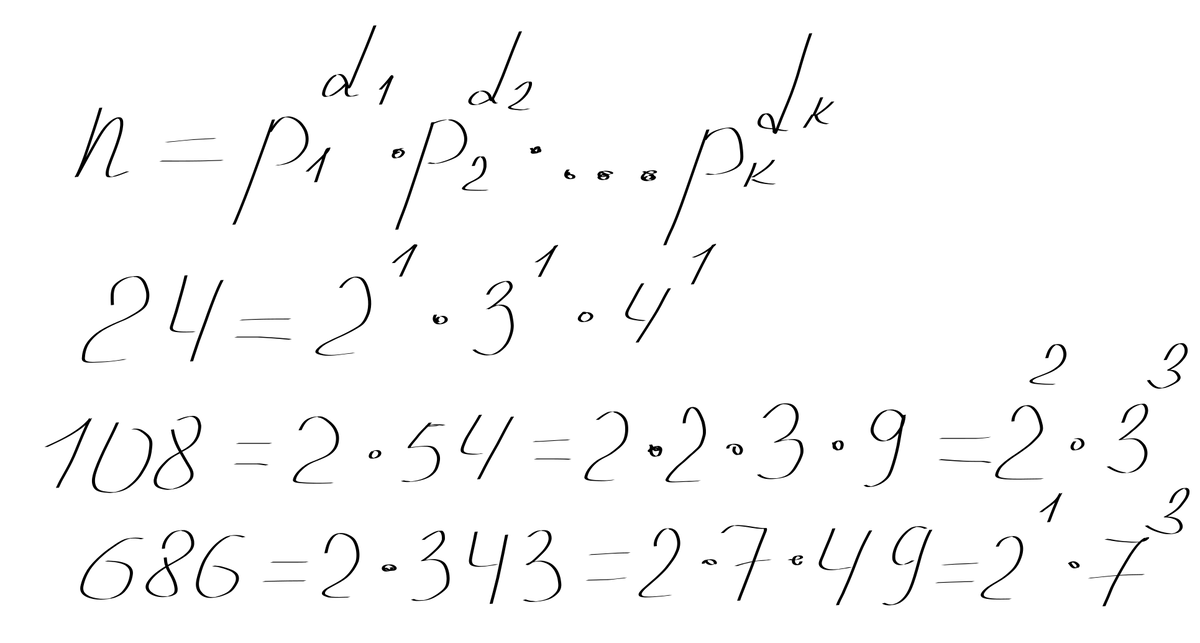 n = p₁^d₁ · p₂^d₂ · ... p_k^d_k
24 = 2¹ · 3¹ · 4¹
108 = 2 · 54 = 2 · 2 · 3 · 9 = 2² · 3³
686 = 2 · 343 = 2 · 7 · 49 = 2¹ · 7³